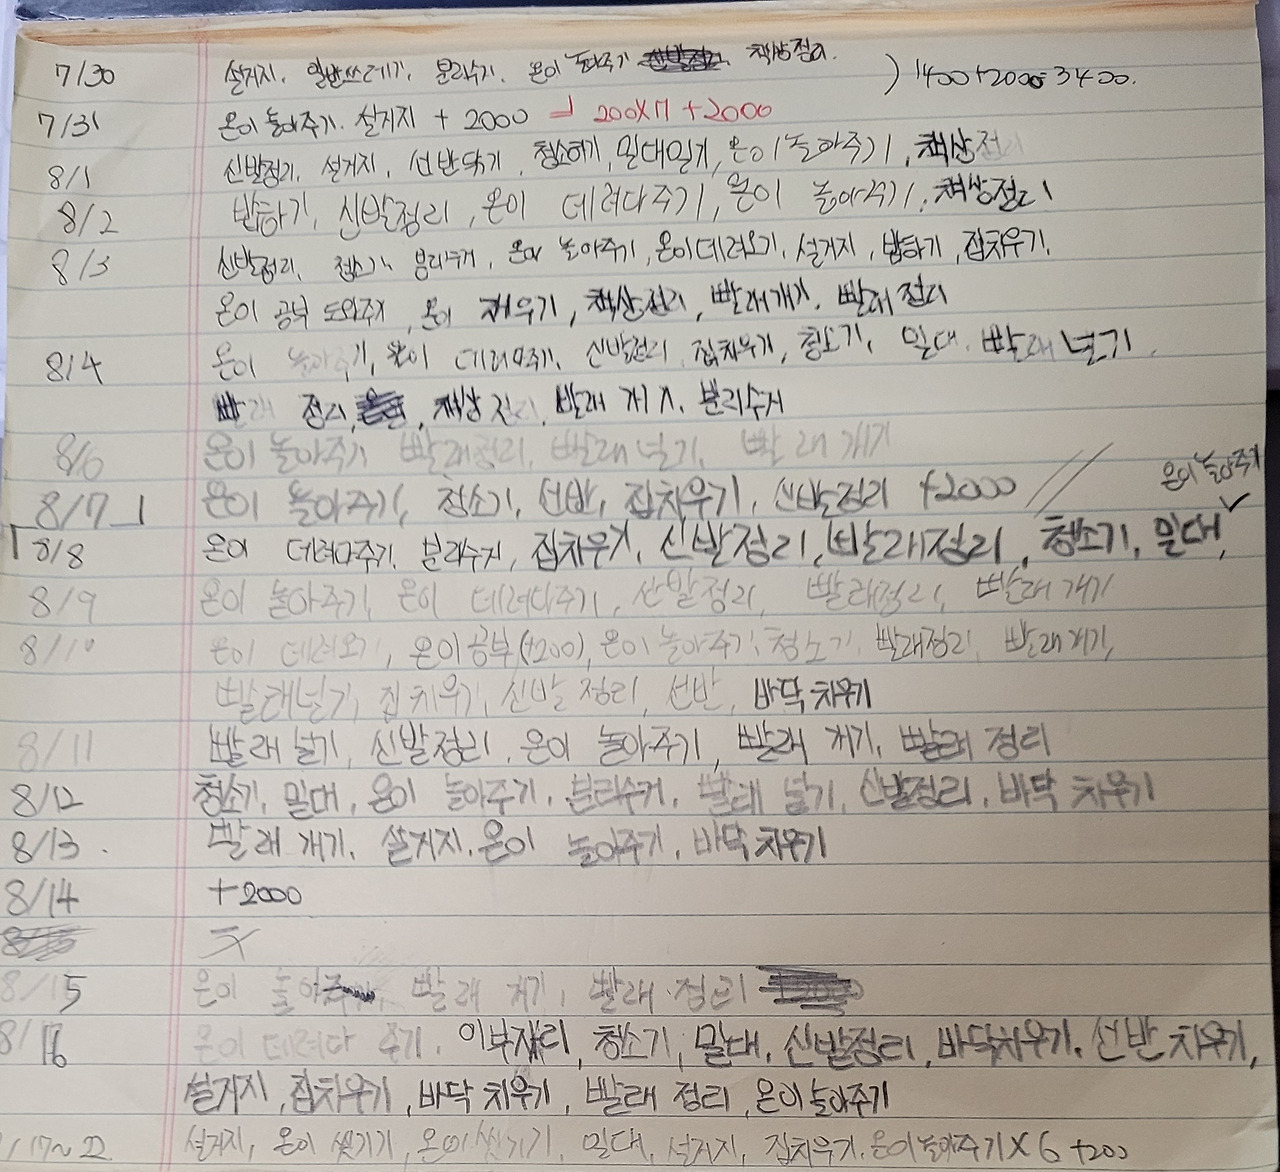 7/30 설거지, 일반쓰레기, 분리수거, 온이 놀아주기 책상정리. ) 1400+2000=3400.
7/31 온이 놀아주기. 설거지 + 2000 200X7 + 2000
8/1 신발정리, 설거지, 선반닦기, 청소하기, 밀대밀기, 온이 놀아주기, 책상정리
8/2 밥하기, 신발정리, 온이 데려다주기, 온이 놀아주기, 책상정리
8/3 신발정리, 청소기, 분리수거, 온이 놀아주기, 온이데려오기, 설거지, 밥하기, 집치우기,
온이 공부 도와주기, 온이 재우기, 책상정리, 빨래개기, 빨래 정리
8/4 온이 놀아주기, 온이 데려다주기, 신발정리, 집치우기, 청소기, 밀대, 빨래 널기,
빨래 정리, 책상 정리, 빨래 개기, 분리수거
8/6 온이 놀아주기 빨래정리, 빨래 널기, 빨래 개기
8/7 온이 놀아주기, 청소기, 선반, 집치우기, 신발정리 +2000 // 온이 놀아주기
8/8 온이 데려다주기, 분리수거, 집치우기, 신발정리, 빨래정리, 청소기, 밀대,
8/9 온이 놀아주기, 온이 데려다주기, 신발정리, 빨래정리, 빨래 개기
8/10 온이 데려오기, 온이공부(+200), 온이 놀아주기, 청소기, 빨래정리, 빨래개기,
빨래널기, 집치우기, 신발 정리, 선반, 바닥 치우기
8/11 빨래 널기, 신발정리, 온이 놀아주기, 빨래 개기, 빨래 정리
8/12 청소기, 밀대, 온이 놀아주기, 분리수거, 빨래 널기, 신발정리, 바닥 치우기
8/13. 빨래 개기, 설거지, 온이 놀아주기, 바닥 치우기
8/14 +2000
8/15 온이 빨래 개기, 빨래 정리
8/16 온이 데려다 주기, 이부자리, 청소기, 밀대, 신발정리, 바닥치우기, 선반 치우기,
설거지, 집치우기, 바닥 치우기, 빨래 정리, 온이놀아주기
/17~22 설거지, 온이 씻기기, 온이 씻기기, 밀대, 설거지, 집치우기, 온이놀아주기X6 +200